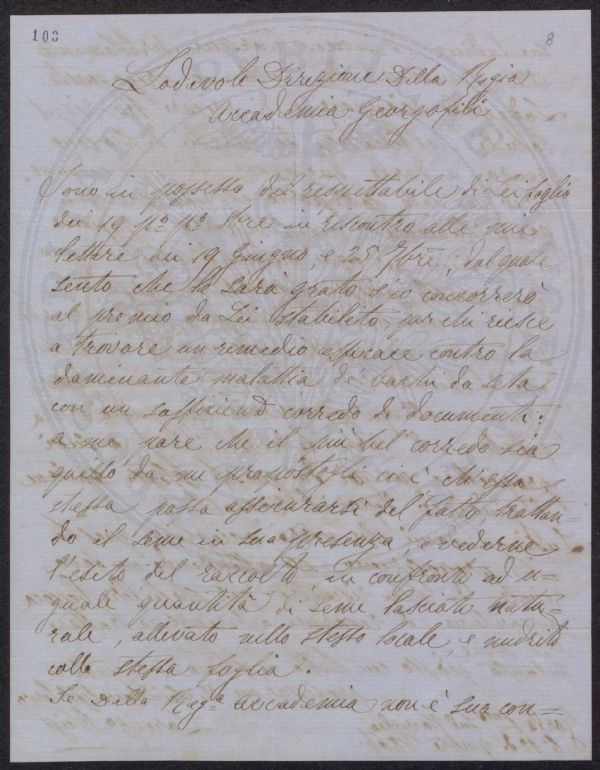 103
8
Lodevole Direzione Della Regia
Accademia Georgofili
Sono in possesso del rispettabile di Lei foglio
dei 19 po. po. 8bre in riscontro alle mie
lettere dei 19 Giugno, e 25 7bre, dal quale
sento che le sarà grato s'io concorrerò
al premio da Lei stabilito, per chi riesce
a trovare un remedio efficace contro la
dominante malattia de' bachi da seta
con un sufficiente corredo di documenti:
a me pare che il più bel corredo sia
quello da me propostogli cioè ch'essa
stessa possa assicurarsi del fatto, trattan=
do il seme in sua presenza, e vederne
l'esito del raccolto, in confronto ad u=
guale quantità di seme lasciato natu=
rale, allevato nello stesso locale, e nudrito
colla stessa foglia.
Se Della Rega Accademia non è sua con=